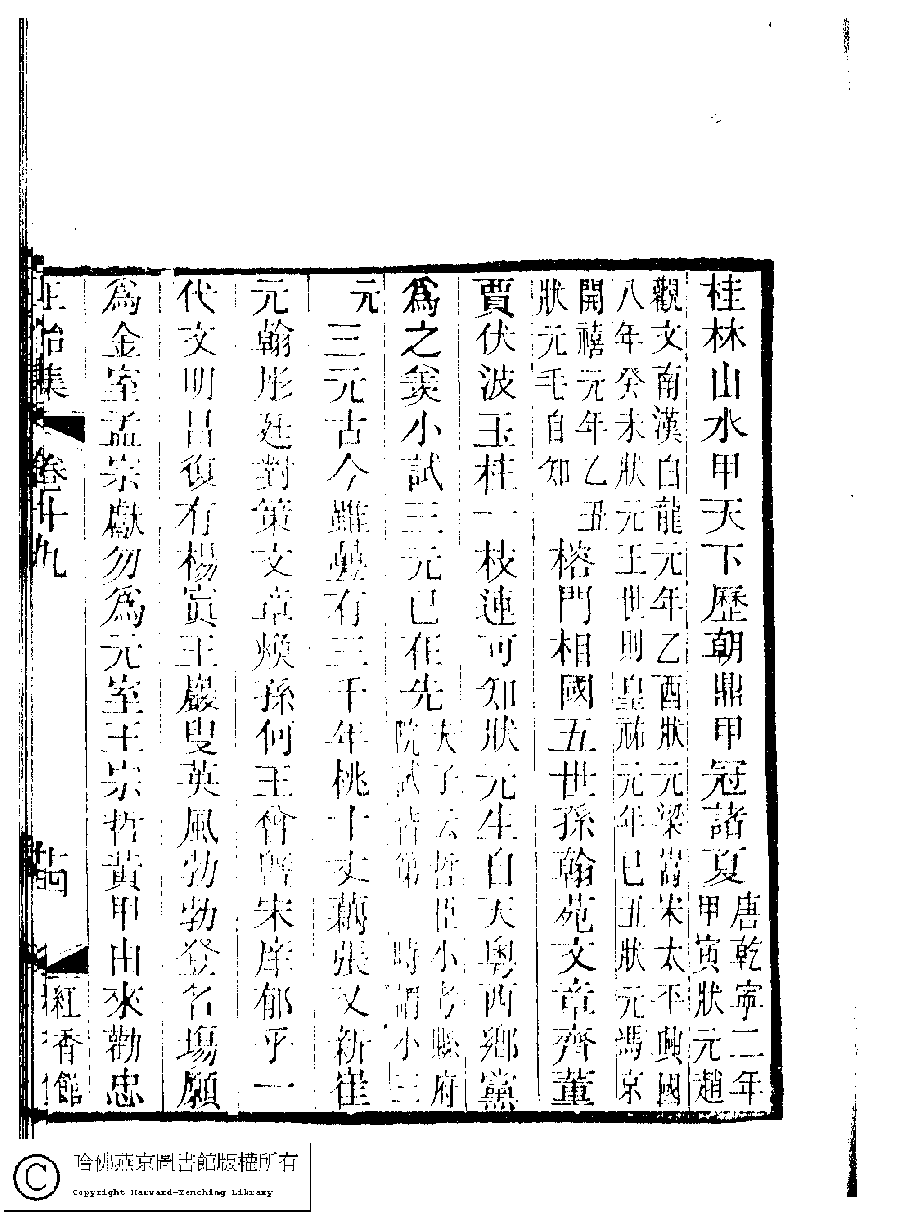 桂林山水甲天下歷朝鼎甲冠諸夏唐乾寧二年甲寅狀元趙
觀文南漢白龍元年乙酉狀元梁嵩宋太平興國
八年癸未狀元王世則皇祐元年己丑狀元馮京
開禧元年乙丑
狀元毛自知
榕門相國五世孫翰苑文章齊董
賈伏波玉柱一枝連可知狀元生自天粵西鄉黨
爲之羨小試三元已在先大子云哲臣小考縣府
院試皆第 時謂小三
元三元古今雖曇有三千年桃十丈藕張又新崔
元翰彤廷對策文章煥孫何王曾曁宋庠郁乎一
代文明昌復有楊寘王巖叟英風勃勃登名場願
爲金室孟宗獻勿爲元室王宗哲黃甲由來勸忠
正始集
卷廿九
紅香館
哈佛燕京圖書館版權所有
Copyright Harvard-Yenching Library